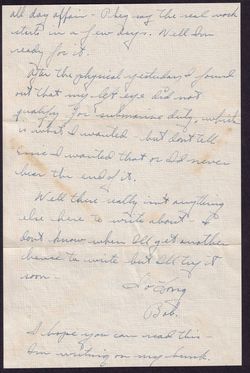 all day affair - They say the real work
starts in a few days. Well I'm
ready for it.
After the physical yesterday I found
out that my left eye did not
qualify for submarine duty, which
is what I wanted - but don't tell
I wanted that or I'd never
hear the end of it.
Well there really isn't anything
else here to write about. I
don't know when I'll get another
chance to write but I'll try it
soon -
So Long
Bob.
I hope you can read this -
I'm writing on my bunk.